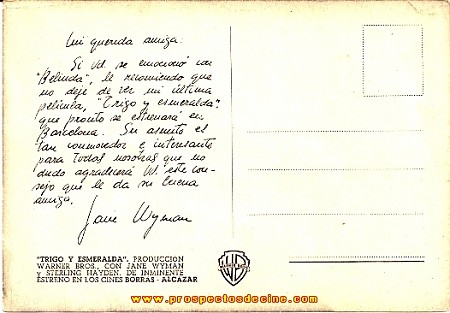 Mi querida amiga:
Si Vd. se emocionó con
"Belinda", le recomiendo que
no deje de ver mi última
película, "Trigo y esmeralda",
que pronto se estrenará en
Barcelona. Su asunto es
tan conmovedor e interesante
para todas nosotras que no
dudo agradecerá Vd. este con-
sejo que le da su buena
amiga.
Jane Wyman
"TRIGO Y ESMERALDA", PRODUCCION
WARNER BROS., CON JANE WYMAN
Y STERLING HAYDEN, DE INMINENTE
ESTRENO EN LOS CINES BORRAS - ALCAZAR
www.prospectosdecine.com